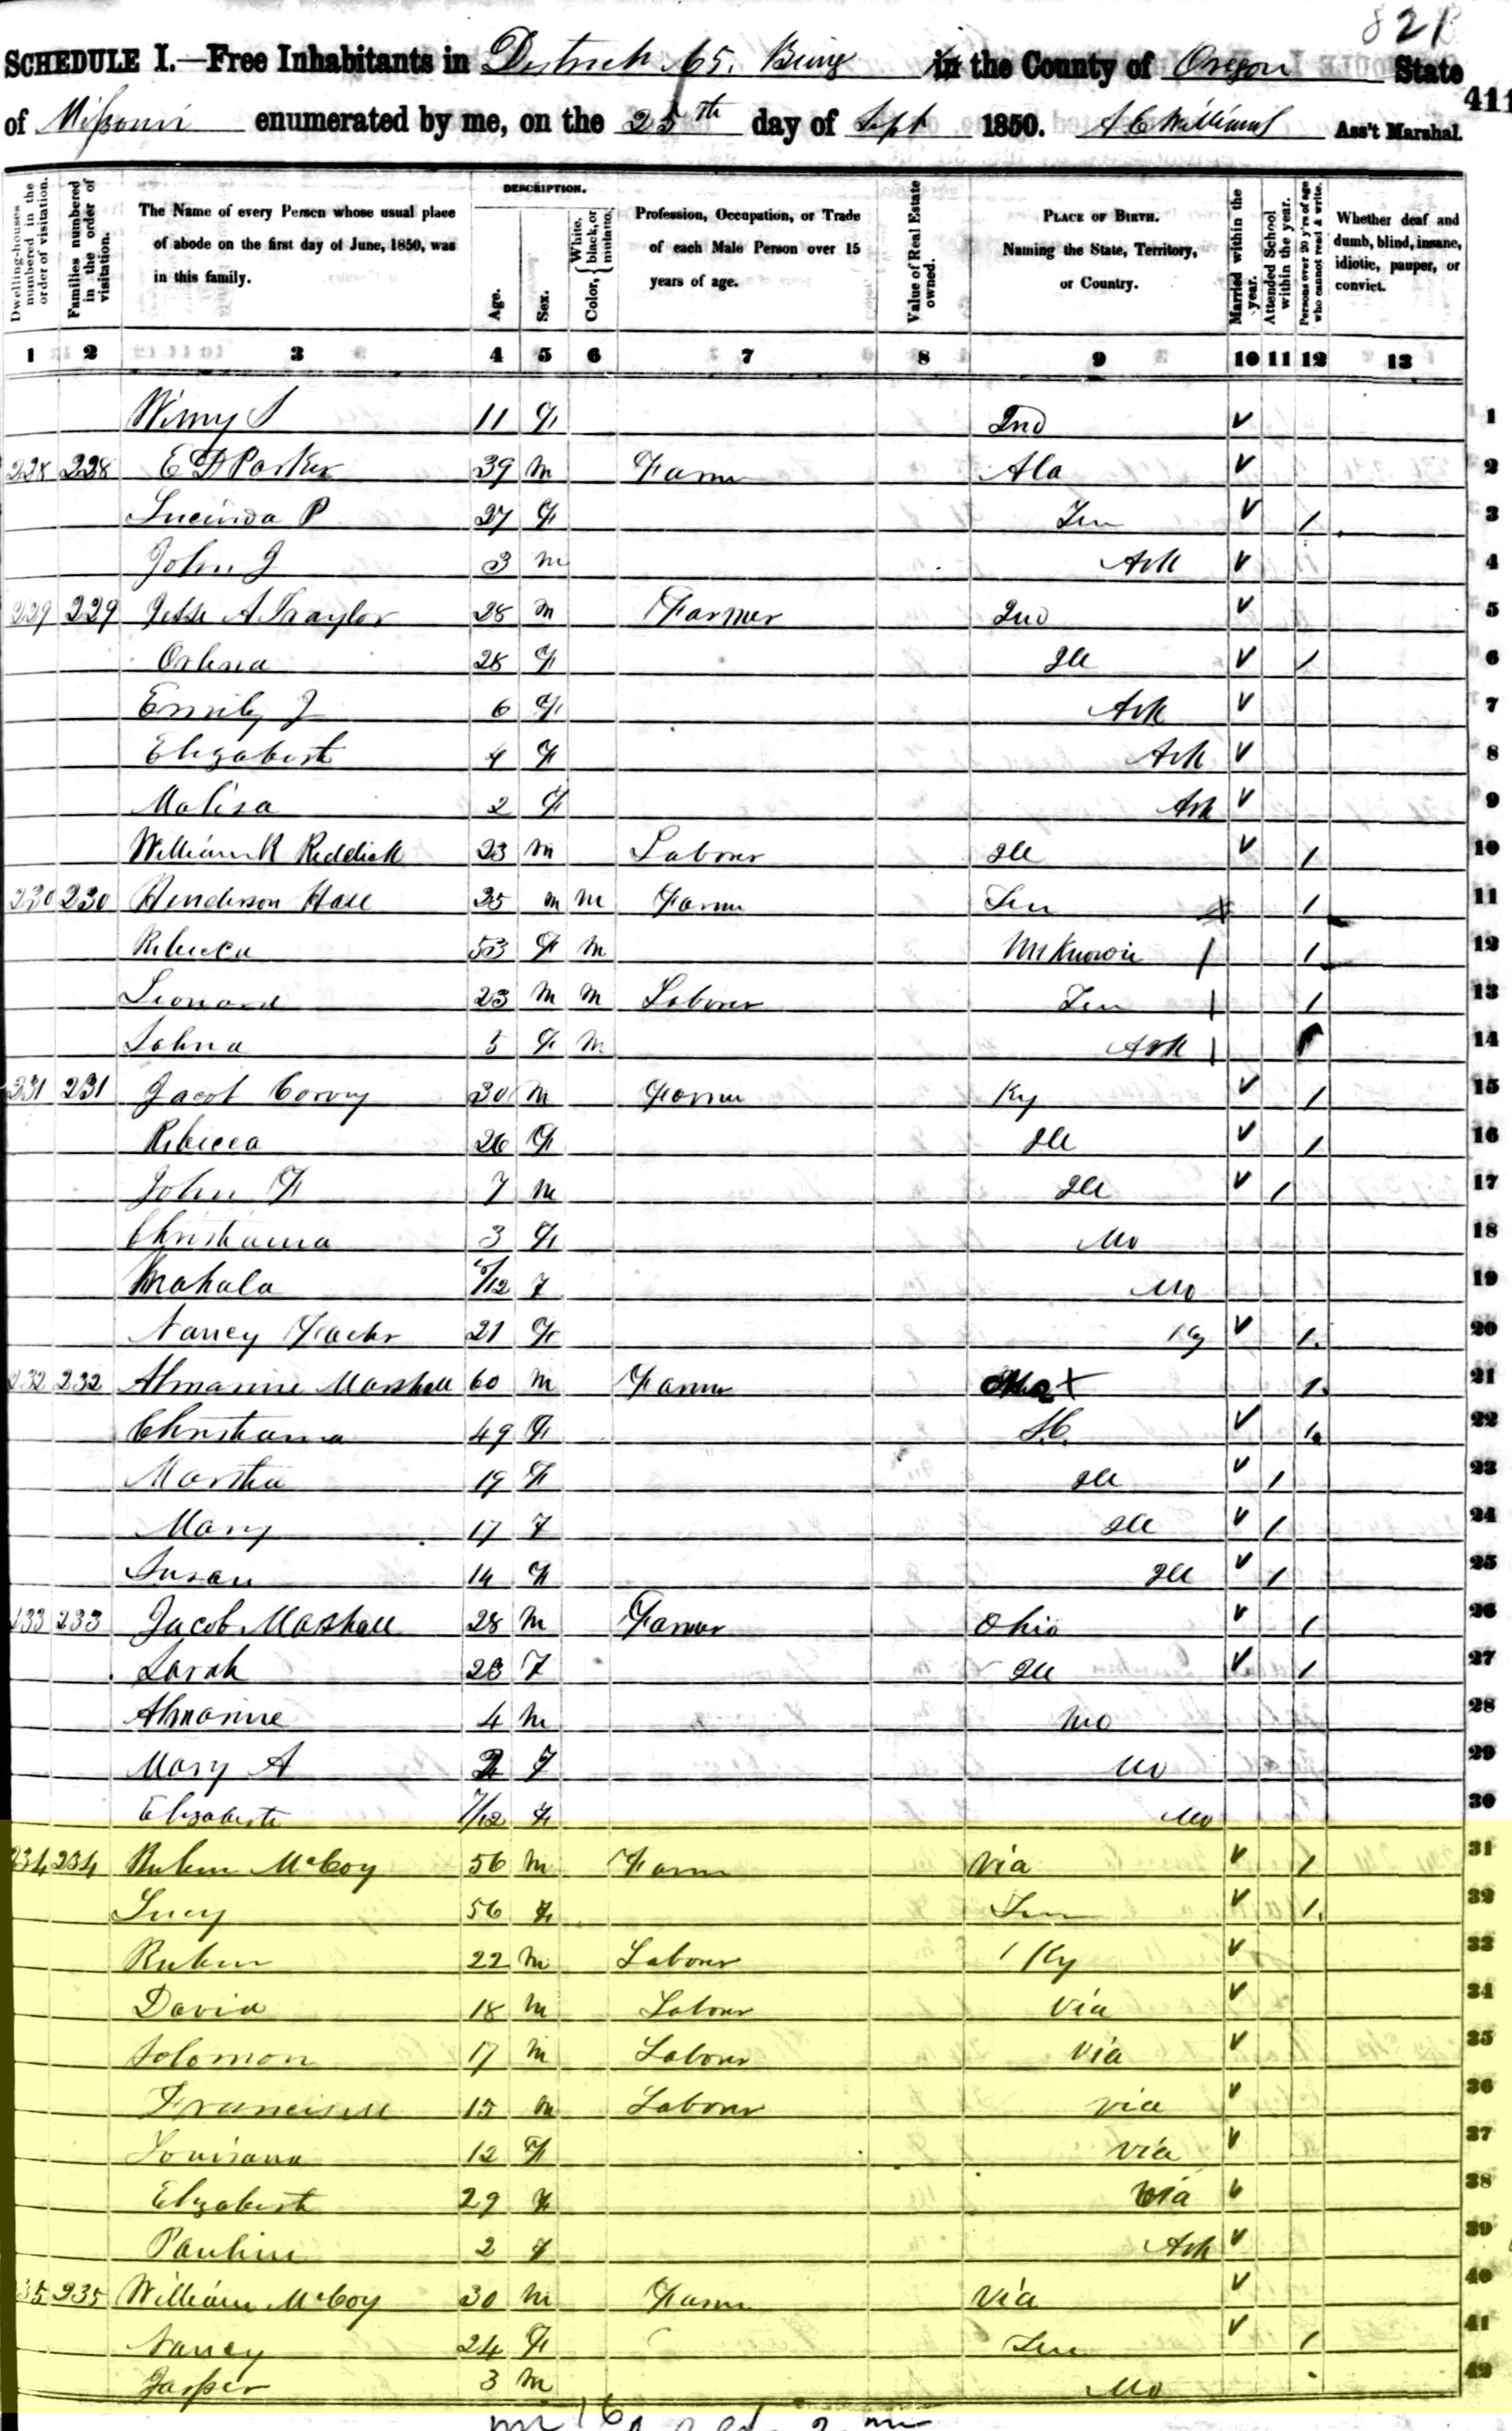 821
SCHEDULE I.—Free Inhabitants in District 65. Being in the County of Oregon State
411
of Missouri enumerated by me, on the 25th day of Sept 1850. A C Williams Ass't Marshal.
Dwelling-houses numbered in the order of visitation.
Families numbered in the order of visitation.
The Name of every Person whose usual place of abode on the first day of June, 1850, was in this family.
DESCRIPTION.
Age.
Sex.
Color, White, black, or mulatto.
Profession, Occupation, or Trade of each Male Person over 15 years of age.
Value of Real Estate owned.
PLACE OF BIRTH. Naming the State, Territory, or Country.
Married within the year.
Attended School within the year.
Persons over 20 y'rs of age who cannot read & write.
Whether deaf and dumb, blind, insane, idiotic, pauper, or convict.
1 2 3 4 5 6 7 8 9 10 11 12 13
11 F Ind 1
228 228 E D Parker 39 m Farmer Ala 2
Lucinda P 27 F Ten / 3
John J 3 m Ark 4
229 229 Jesse A Traylor 28 m Farmer Ind 5
Orlena 28 F Ill / 6
Emily J 6 F Ark 7
Elizabeth 4 F Ark 8
Malisa 2 F Ark 9
William R Reddick 23 m Labour Ill / 10
230 230 Henderson Hall 35 m m Farmer Ten / 11
Rebecca 53 F m / 12
Leonard 23 m m Labour Ten / 13
5 F m Ark 14
231 231 Jacob 30 m Farmer Ky / 15
Rebecca 26 F Ill / 16
John F 7 m Ill / 17
Christiana 3 F Mo 18
Mahala /12 F Mo 19
Nancy 21 F Ky / 20
232 232 Almarine Marshall 60 m Farmer / 21
Christiana 49 F S.C. / 22
Martha 19 F Ill / 23
Mary 17 F Ill / 24
Susan 14 F Ill / 25
233 233 Jacob Marshall 28 m Farmer Ohio / 26
Sarah 23 F Ill / 27
Almarine 4 m Mo 28
Mary A 2 F Mo 29
Elizabeth 7/12 F Mo 30
234 234 Ruben McCoy 56 m Farmer Via / 31
Lucy 56 F Ten / 32
Ruben 22 m Labour Ky 33
David 18 m Labour Via 34
Solomon 17 m Labour Via 35
15 m Labour Via 36
Louisana 12 F Via 37
Elizabeth 29 F Via 38
Pauline 2 F Ark 39
235 235 William McCoy 30 m Farmer Via 40
Nancy 24 F Ten / 41
Jasper 3 m Mo 42